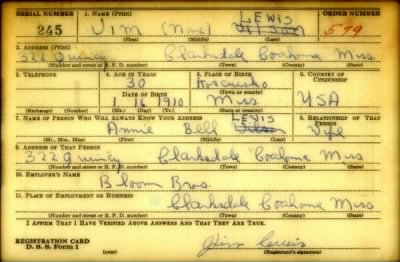 SERIAL NUMBER 1. NAME (Print) ORDER NUMBER
LEWIS
245 JIM (None) 579
(First) (Middle) (Last)
2. ADDRESS (Print)
322 Quincy Clarksdale Coahoma Miss.
(Number and street or R. F. D. number) (Town) (County) (State)
3. TELEPHONE 4. AGE IN YEARS 5. PLACE OF BIRTH 6. COUNTRY OF CITIZENSHIP
30 Kosciusko
DATE OF BIRTH (Town or county)
16 1910 Miss USA
(Exchange) (Number) (Mo.) (Day) (Yr.) (State or country)
7. NAME OF PERSON WHO WILL ALWAYS KNOW YOUR ADDRESS 8. RELATIONSHIP OF THAT PERSON
LEWIS
Annie Bell Wife
(Mr., Mrs., Miss) (First) (Middle) (Last)
9. ADDRESS OF THAT PERSON
322 Quincy Clarksdale Coahoma Miss
(Number and street or R. F. D. number) (Town) (County) (State)
10. EMPLOYER'S NAME
Bloom Bros.
11. PLACE OF EMPLOYMENT OR BUSINESS
Clarksdale Coahoma Miss
(Number and street or R. F. D. number) (Town) (County) (State)
I AFFIRM THAT I HAVE VERIFIED ABOVE ANSWERS AND THAT THEY ARE TRUE.
REGISTRATION CARD
D. S. S. Form 1 Jim Lewis
(Registrant's signature)